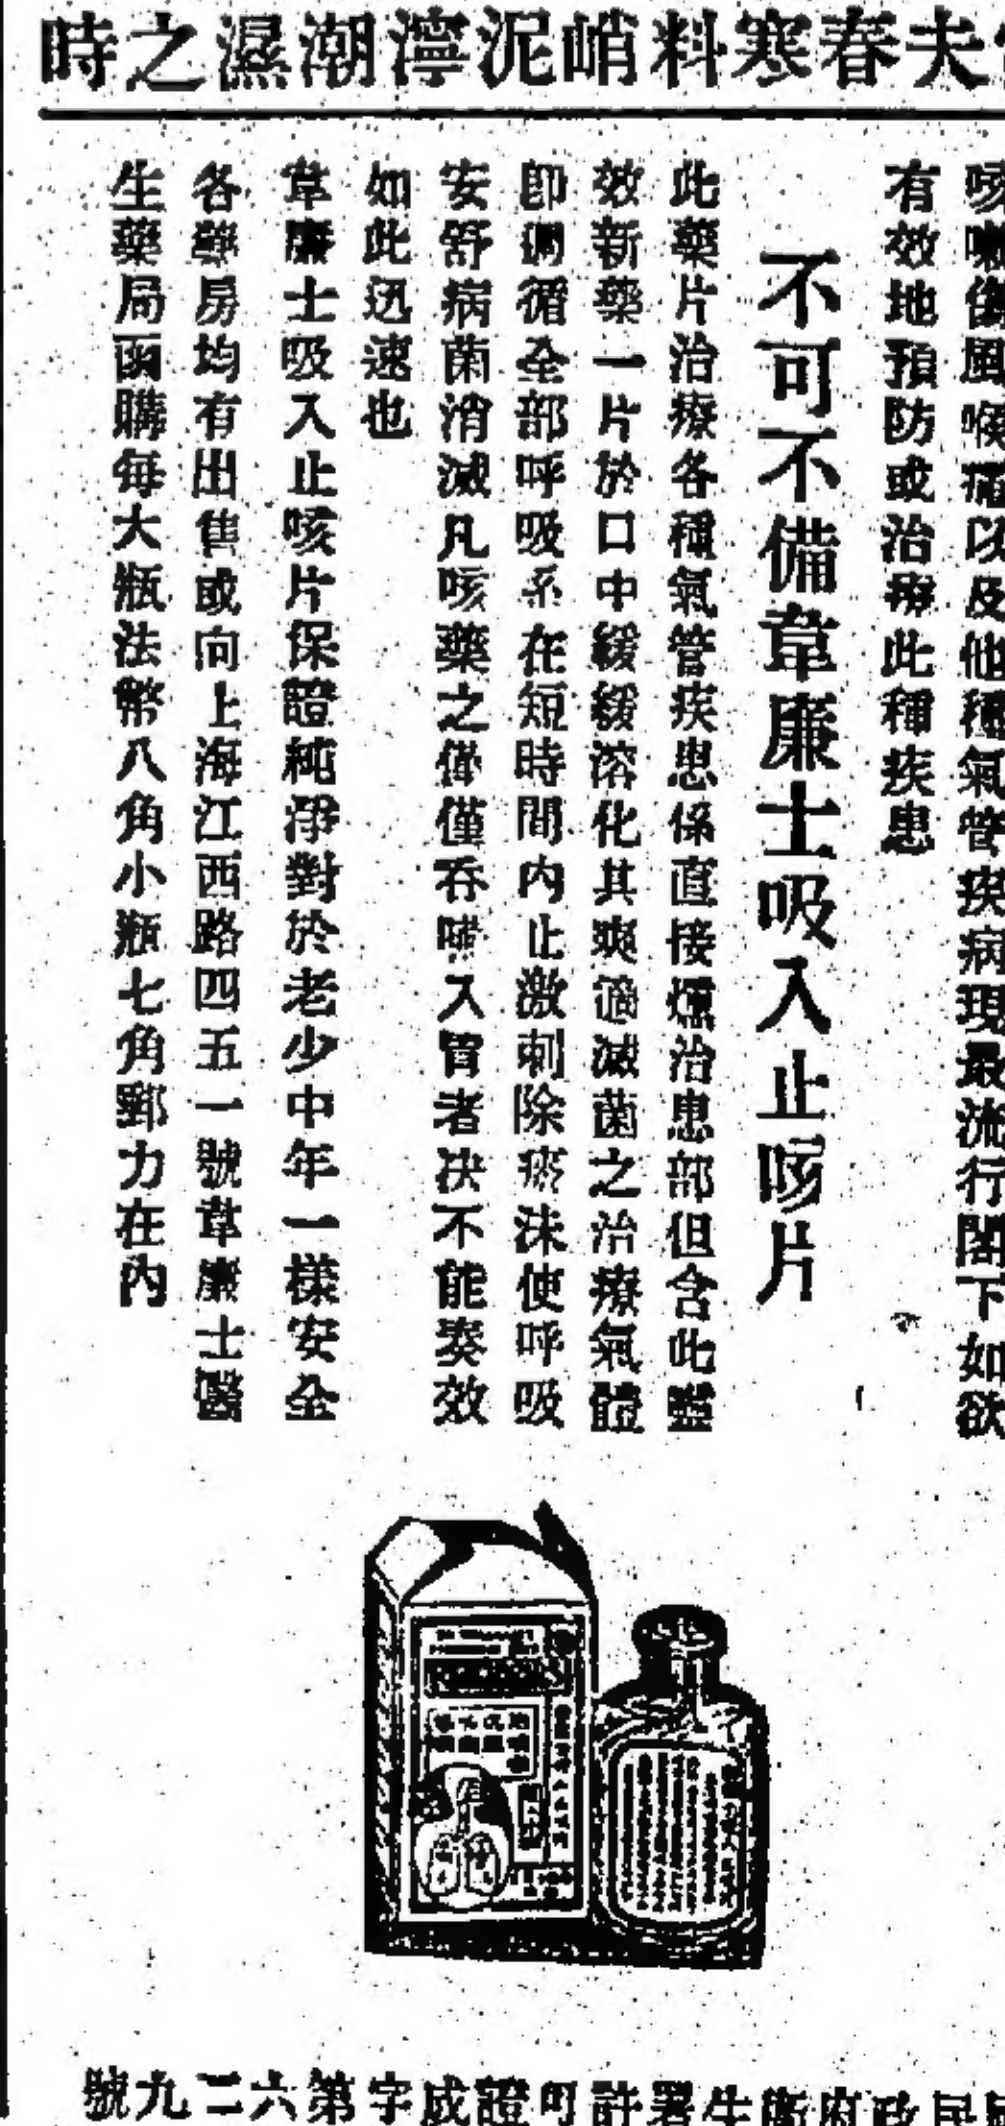 夫春寒料峭泥濘潮濕之時
咳嗽傷風喉痛以及他種氣管疾病現最流行閣下如欲
有效地預防或治療此種疾患
不可不備韋廉士吸入止咳片
此藥片治療各種氣管疾患係直接燻治患部但含此靈
效新藥一片於口中緩緩溶化其爽適滅菌之治療氣體
卽調循全部呼吸系在短時間內止激刺除痰沫使呼吸
安舒病菌消滅凡咳藥之僅僅吞嚥入胃者决不能奏效
如此迅速也
韋廉士吸入止咳片保證純淨對於老少中年一樣安全
各藥房均有出售或向上海江西路四五一號韋廉士醫
生藥局函購每大瓶法幣八角小瓶七角郵力在內
民政府衞生署許可證成字第六二九號